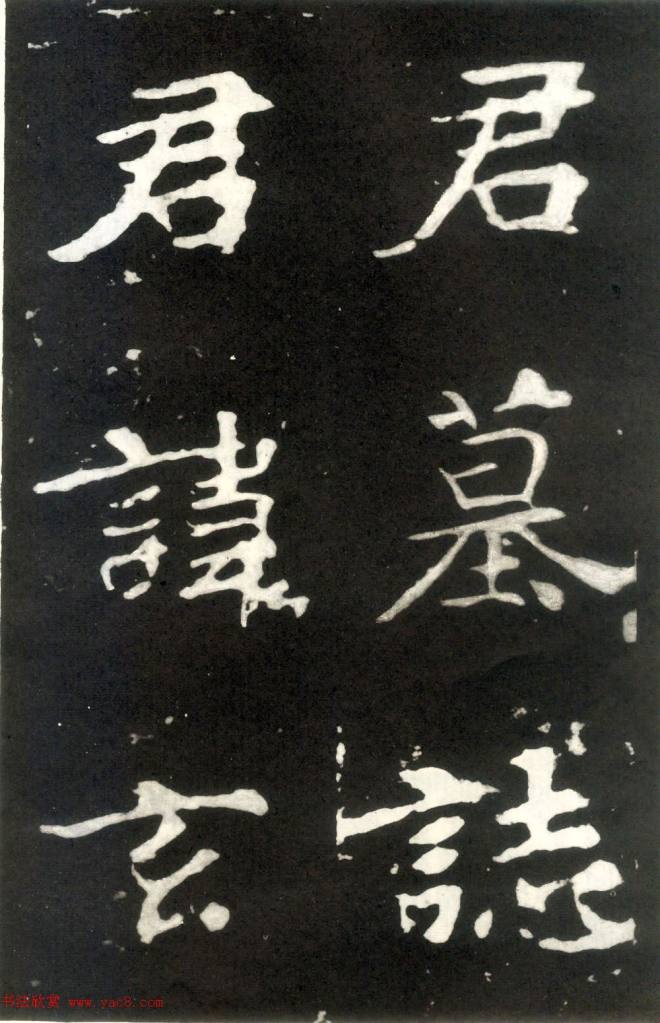 君墓誌
君諱玄
书法欣赏 www.yac8.com